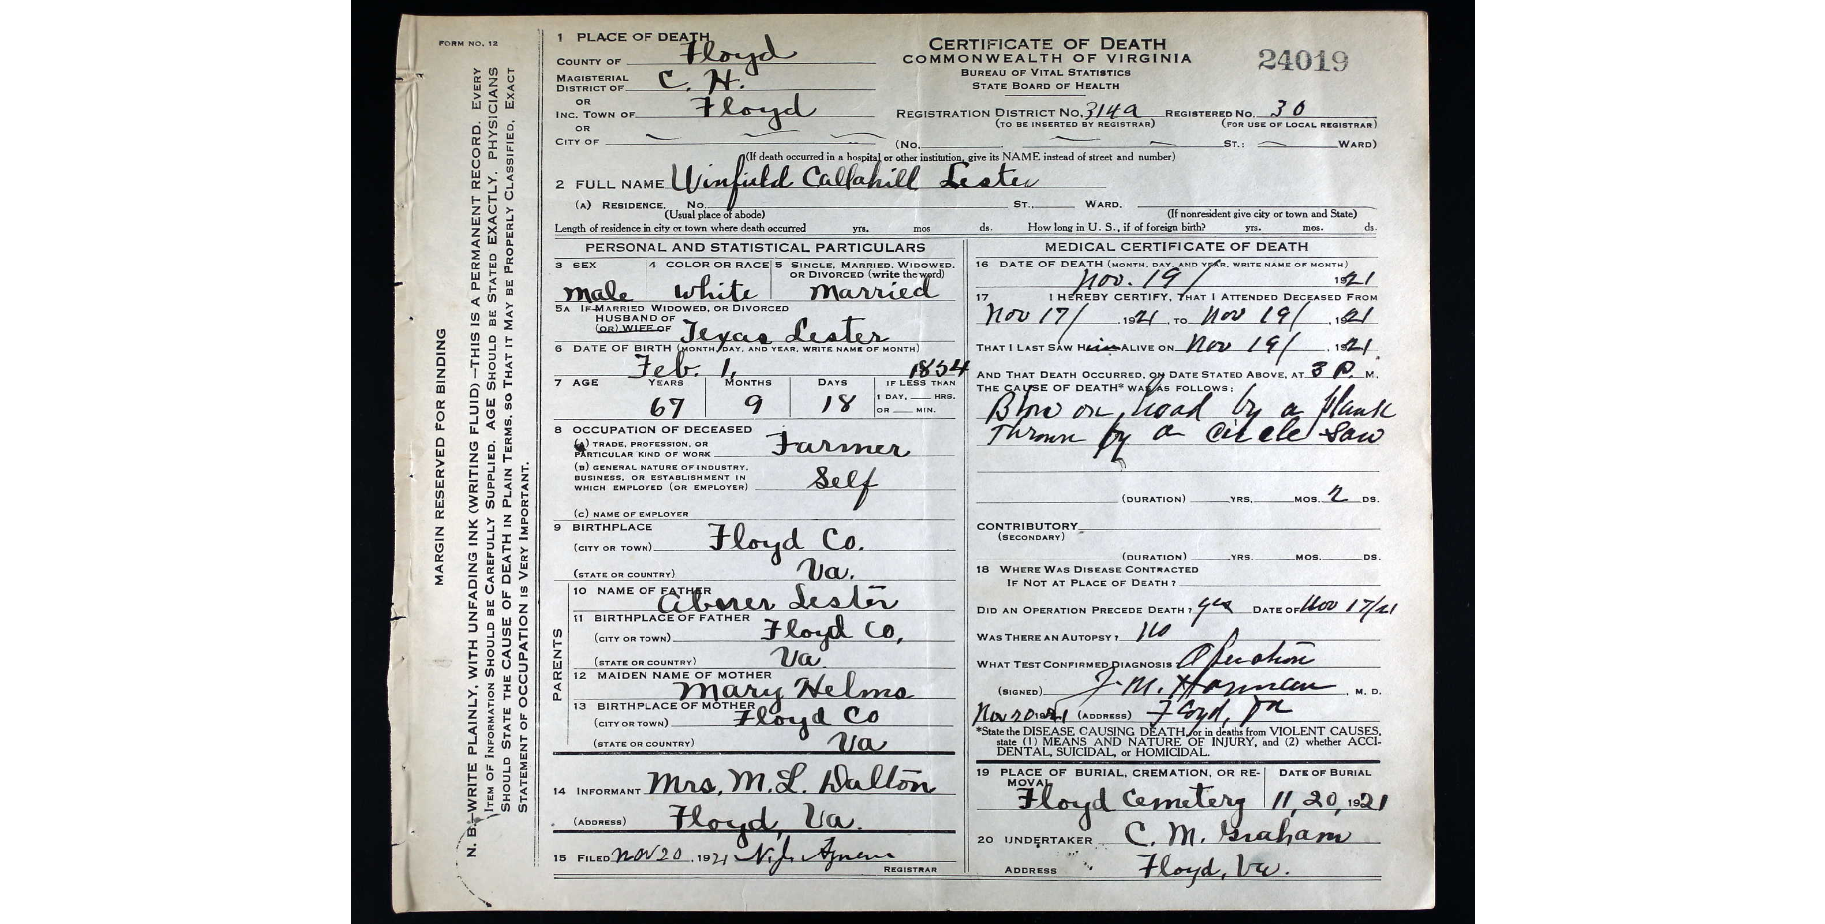 FORM NO. 12
MARGIN RESERVED FOR BINDING
N. B.—WRITE PLAINLY, WITH UNFADING INK (WRITING FLUID)—THIS IS A PERMANENT RECORD. EVERY
ITEM OF INFORMATION SHOULD BE CAREFULLY SUPPLIED. AGE SHOULD BE STATED EXACTLY. PHYSICIANS
SHOULD STATE THE CAUSE OF DEATH IN PLAIN TERMS, SO THAT IT MAY BE PROPERLY CLASSIFIED, EXACT
STATEMENT OF OCCUPATION IS VERY IMPORTANT.
CERTIFICATE OF DEATH
COMMONWEALTH OF VIRGINIA
BUREAU OF VITAL STATISTICS
STATE BOARD OF HEALTH
24019
1 PLACE OF DEATH
COUNTY OF Floyd
MAGISTERIAL
DISTRICT OF C. H.
OR
INC. TOWN OF Floyd
OR
CITY OF
REGISTRATION DISTRICT NO. 314a REGISTERED NO. 30
(TO BE INSERTED BY REGISTRAR) (FOR USE OF LOCAL REGISTRAR)
(NO. ST.: WARD)
(If death occurred in a hospital or other institution, give its NAME instead of street and number)
2 FULL NAME Winfield Callahill Lester
(A) RESIDENCE. No. ST., WARD.
(Usual place of abode) (If nonresident give city or town and State)
Length of residence in city or town where death occurred yrs. mos ds. How long in U. S., if of foreign birth? yrs. mos. ds.
PERSONAL AND STATISTICAL PARTICULARS
3 SEX 4 COLOR OR RACE 5 SINGLE, MARRIED, WIDOWED,
OR DIVORCED (write the word)
male white married
5A IF MARRIED WIDOWED, OR DIVORCED
HUSBAND OF
(OR) WIFE OF Texas Lester
6 DATE OF BIRTH (MONTH, DAY, AND YEAR, WRITE NAME OF MONTH)
Feb. 1, 1854
7 AGE YEARS MONTHS DAYS IF LESS THAN
1 DAY, HRS.
67 9 18 OR MIN.
8 OCCUPATION OF DECEASED
(A) TRADE, PROFESSION, OR
PARTICULAR KIND OF WORK Farmer
(B) GENERAL NATURE OF INDUSTRY,
BUSINESS, OR ESTABLISHMENT IN
WHICH EMPLOYED (OR EMPLOYER) Self
(C) NAME OF EMPLOYER
9 BIRTHPLACE
(CITY OR TOWN) Floyd Co.
(STATE OR COUNTRY) Va.
PARENTS
10 NAME OF FATHER
Abner Lester
11 BIRTHPLACE OF FATHER
(CITY OR TOWN) Floyd Co,
(STATE OR COUNTRY) Va
12 MAIDEN NAME OF MOTHER
Mary Helms
13 BIRTHPLACE OF MOTHER
(CITY OR TOWN) Floyd Co
(STATE OR COUNTRY) Va
14 INFORMANT Mrs, M. L. Dalton
(ADDRESS) Floyd, Va.
15 FILED Nov 20, 1921
REGISTRAR
MEDICAL CERTIFICATE OF DEATH
16 DATE OF DEATH (MONTH, DAY, AND YEAR, WRITE NAME OF MONTH)
Nov. 19/ 1921
17 I HEREBY CERTIFY, THAT I ATTENDED DECEASED FROM
Nov 17/, 1921, TO Nov 19/, 1921
THAT I LAST SAW Him ALIVE ON Nov 19/, 1921
AND THAT DEATH OCCURRED, ON DATE STATED ABOVE, AT 3 P. M.
THE CAUSE OF DEATH* WAS AS FOLLOWS:
Blow on head by a plank
thrown by a circle saw
(DURATION) YRS. MOS. 2 DS.
CONTRIBUTORY
(SECONDARY)
(DURATION) YRS. MOS. DS.
18 WHERE WAS DISEASE CONTRACTED
IF NOT AT PLACE OF DEATH?
DID AN OPERATION PRECEDE DEATH? yes DATE OF Nov 17/21
WAS THERE AN AUTOPSY? no
WHAT TEST CONFIRMED DIAGNOSIS Operation
(SIGNED) J. M. Harman, M. D.
Nov 20 1921 (ADDRESS) Floyd, Va
*State the DISEASE CAUSING DEATH, or in deaths from VIOLENT CAUSES,
state (1) MEANS AND NATURE OF INJURY, and (2) whether ACCI-
DENTAL, SUICIDAL, or HOMICIDAL.
19 PLACE OF BURIAL, CREMATION, OR RE- DATE OF BURIAL
MOVAL
Floyd Cemetery 11, 20, 1921
20 UNDERTAKER C. M. Graham
ADDRESS Floyd, Va.